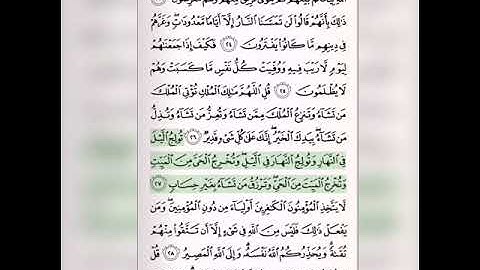 ذَٰلِكَ بِأَنَّهُمْ قَالُوا۟ لَن تَمَسَّنَا ٱلنَّارُ إِلَّآ أَيَّامًا مَّعْدُودَٰتٍ ۖ وَغَرَّهُمْ
فِى دِينِهِم مَّا كَانُوا۟ يَفْتَرُونَ ٢٤ فَكَيْفَ إِذَا جَمَعْنَٰهُمْ
لِيَوْمٍ لَّا رَيْبَ فِيهِ وَوُفِّيَتْ كُلُّ نَفْسٍ مَّا كَسَبَتْ وَهُمْ
لَا يُظْلَمُونَ ٢٥ قُلِ ٱللَّهُمَّ مَٰلِكَ ٱلْمُلْكِ تُؤْتِى ٱلْمُلْكَ
مَن تَشَآءُ وَتَنزِعُ ٱلْمُلْكَ مِمَّن تَشَآءُ وَتُعِزُّ مَن تَشَآءُ وَتُذِلُّ
مَن تَشَآءُ ۖ بِيَدِكَ ٱلْخَيْرُ ۖ إِنَّكَ عَلَىٰ كُلِّ شَىْءٍ قَدِيرٌ ٢٦ تُولِجُ ٱلَّيْلَ
فِى ٱلنَّهَارِ وَتُولِجُ ٱلنَّهَارَ فِى ٱلَّيْلِ ۖ وَتُخْرِجُ ٱلْحَىَّ مِنَ ٱلْمَيِّتِ
وَتُخْرِجُ ٱلْمَيِّتَ مِنَ ٱلْحَىِّ ۖ وَتَرْزُقُ مَن تَشَآءُ بِغَيْرِ حِسَابٍ ٢٧
لَّا يَتَّخِذِ ٱلْمُؤْمِنُونَ ٱلْكَٰفِرِينَ أَوْلِيَآءَ مِن دُونِ ٱلْمُؤْمِنِينَ ۖ وَمَن
يَفْعَلْ ذَٰلِكَ فَلَيْسَ مِنَ ٱللَّهِ فِى شَىْءٍ إِلَّآ أَن تَتَّقُوا۟ مِنْهُمْ
تُقَىٰةً ۗ وَيُحَذِّرُكُمُ ٱللَّهُ نَفْسَهُۥ ۗ وَإِلَى ٱللَّهِ ٱلْمَصِيرُ ٢٨ قُلْ